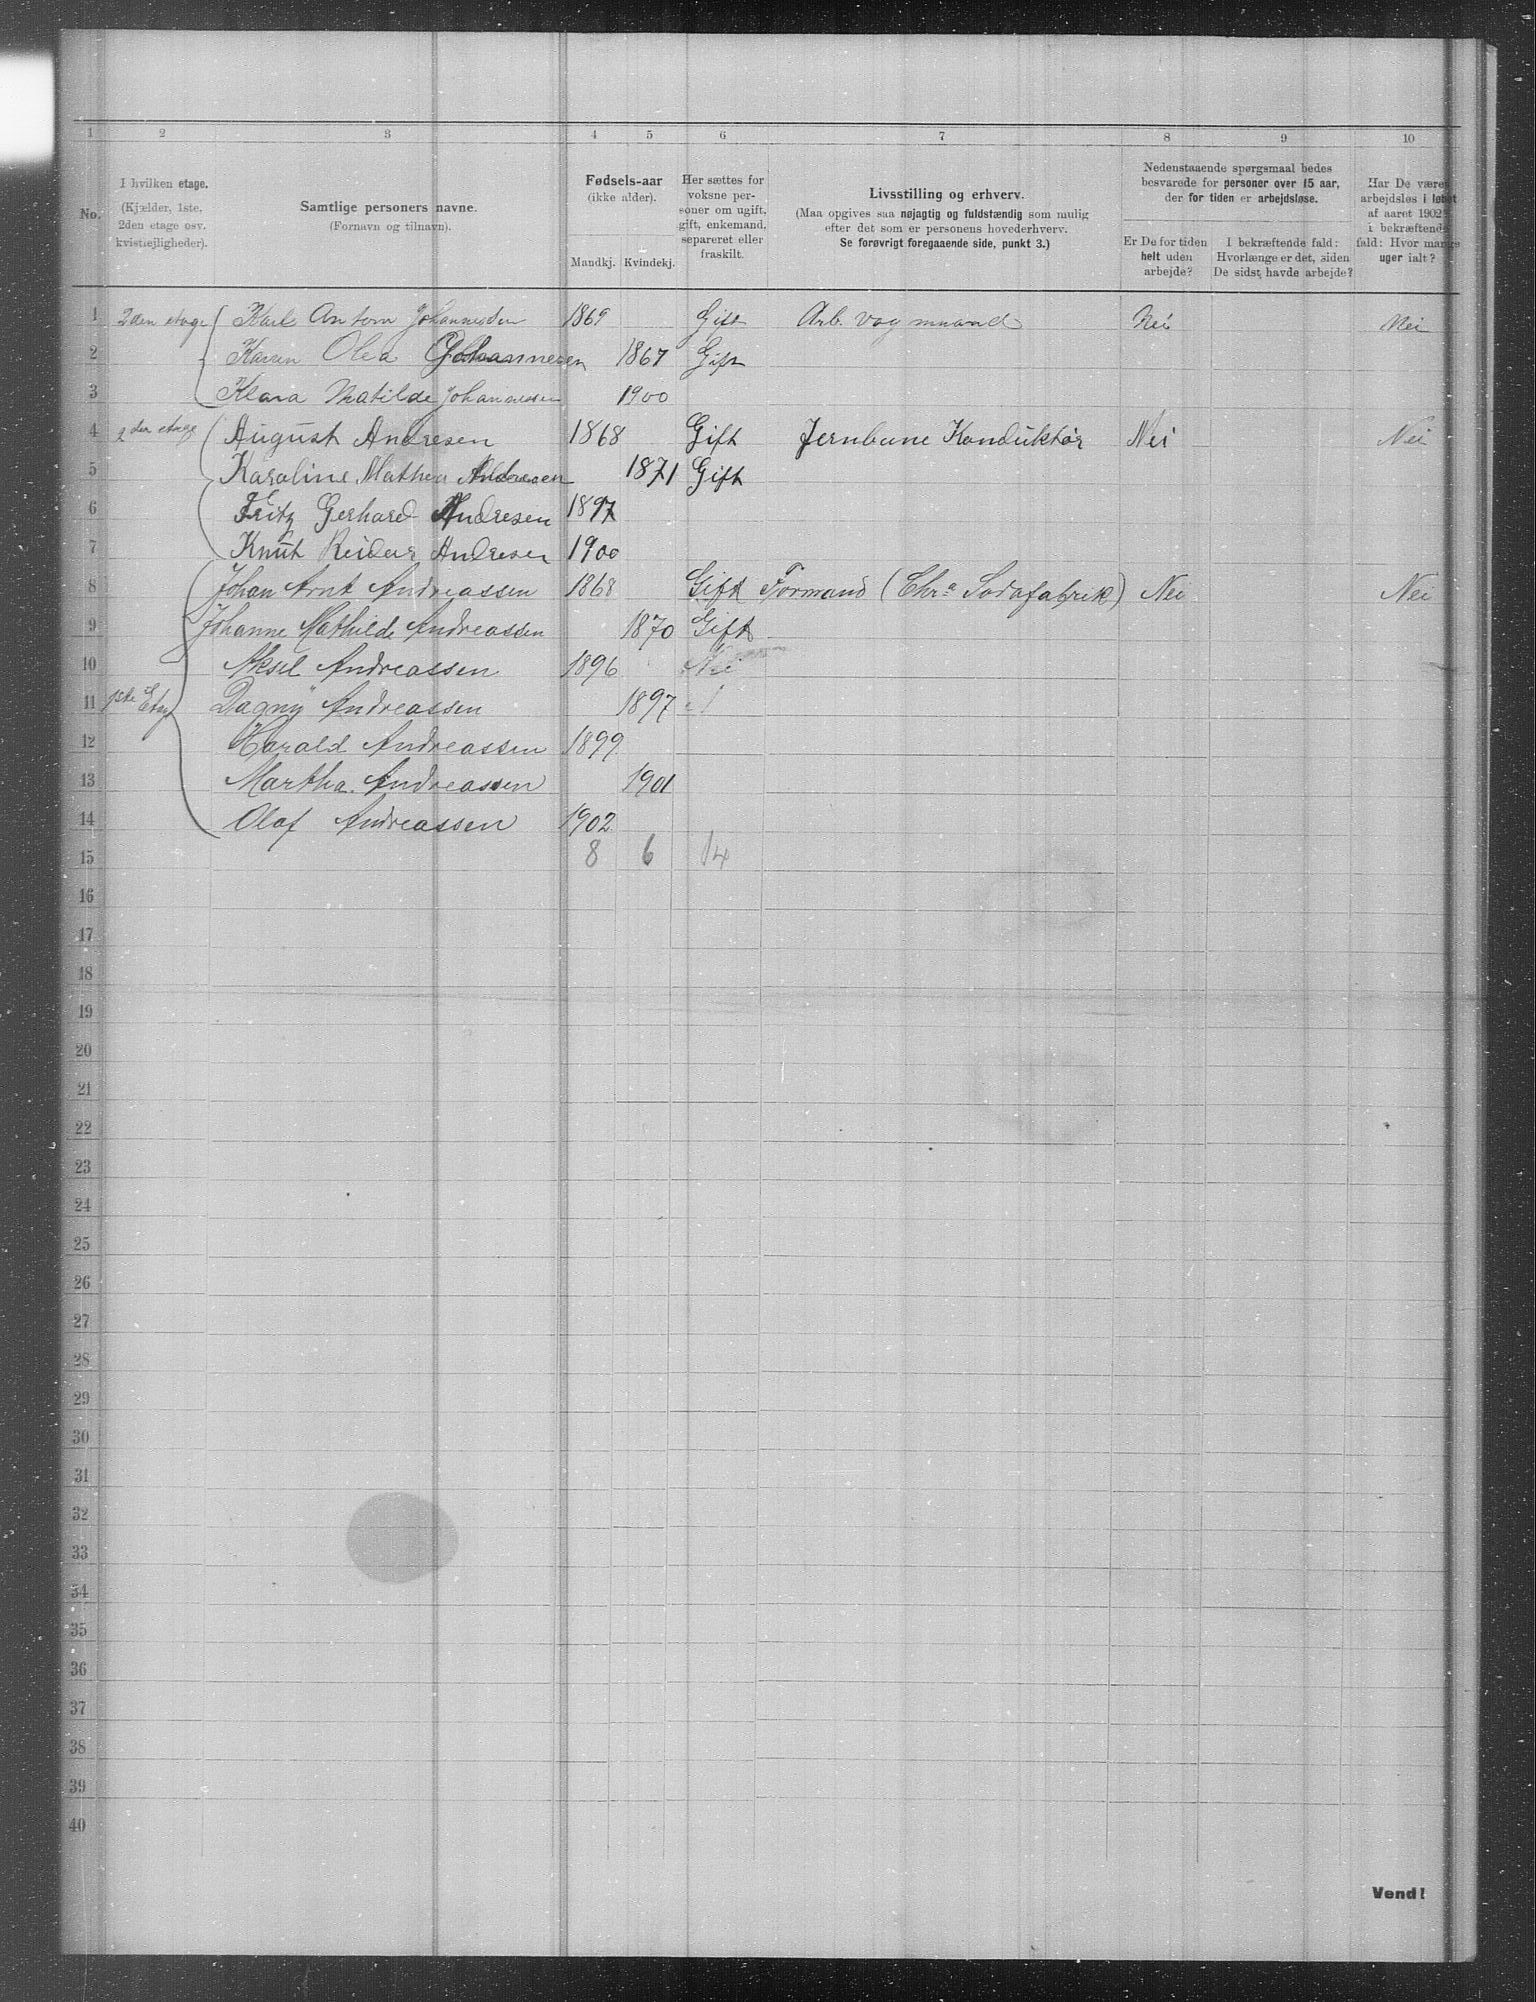 1 2 3 4 5 6 7 8 9 10
No.
I hvilken etage.
(Kjælder, 1ste,
2den etage osv.
kvistlejligheder).
Samtlige personers navne.
(Fornavn og tilnavn).
Fødsels-aar
(ikke alder).
Mandkj. Kvindekj.
Her sættes for
voksne per-
soner om ugift,
gift, enkemand,
separeret eller
fraskilt.
Livsstilling og erhverv.
(Maa opgives saa nøjagtig og fuldstændig som mulig
efter det som er personens hovederhverv.
Se forøvrigt foregaaende side, punkt 3.)
Nedenstaaende spørgsmaal bedes
besvarede for personer over 15 aar,
der for tiden er arbejdsløse.
Er De for tiden
helt uden
arbejde?
I bekræftende fald:
Hvorlænge er det, siden
De sidst havde arbejde?
Har De været
arbejdsløs i løbet
af aaret 1902?
i bekræftende
fald: Hvor mange
uger ialt?
1 2den etage Karl Anton Johannessen 1869 Gift Arb. vognmand Nei Nei
2 Karen Olea Johannesen 1867 Gift
3 Klara Matilde Johannessen 1900
4 2den etage August Andresen 1868 Gift Jernbane Konduktør Nei Nei
5 Karoline Mathea Andresen 1871 Gift
6 Fritz Gerhard Andresen 1897
7 Knut Reidar Andresen 1900
8 Johan Arnt Andreassen 1868 Gift Formand (Chr.a Sodafabrik) Nei Nei
9 Johanne Mathilde Andreassen 1870 Gift
10 Aksel Andreassen 1896 Nei
11 1ste Etag Dagny Andreassen 1897
12 Harald Andreassen 1899
13 Martha Andreassen 1901
14 Olaf Andreassen 1902
15 8 6 14
16
17
18
19
20
21
22
23
24
25
26
27
28
29
30
31
32
33
34
35
36
37
38
39
40
Vend!